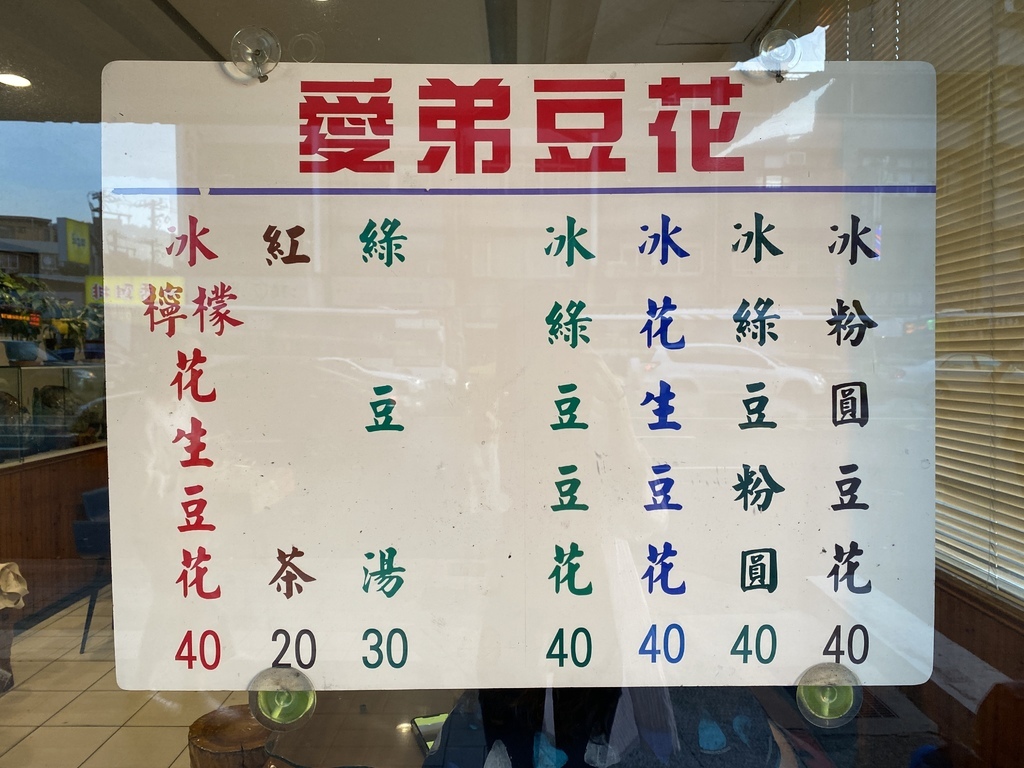 愛弟豆花
冰粉圓豆花 40
冰綠豆粉圓 40
冰花生豆花 40
冰綠豆豆花 40
綠豆湯 30
紅茶 20
冰檸檬花生豆花 40